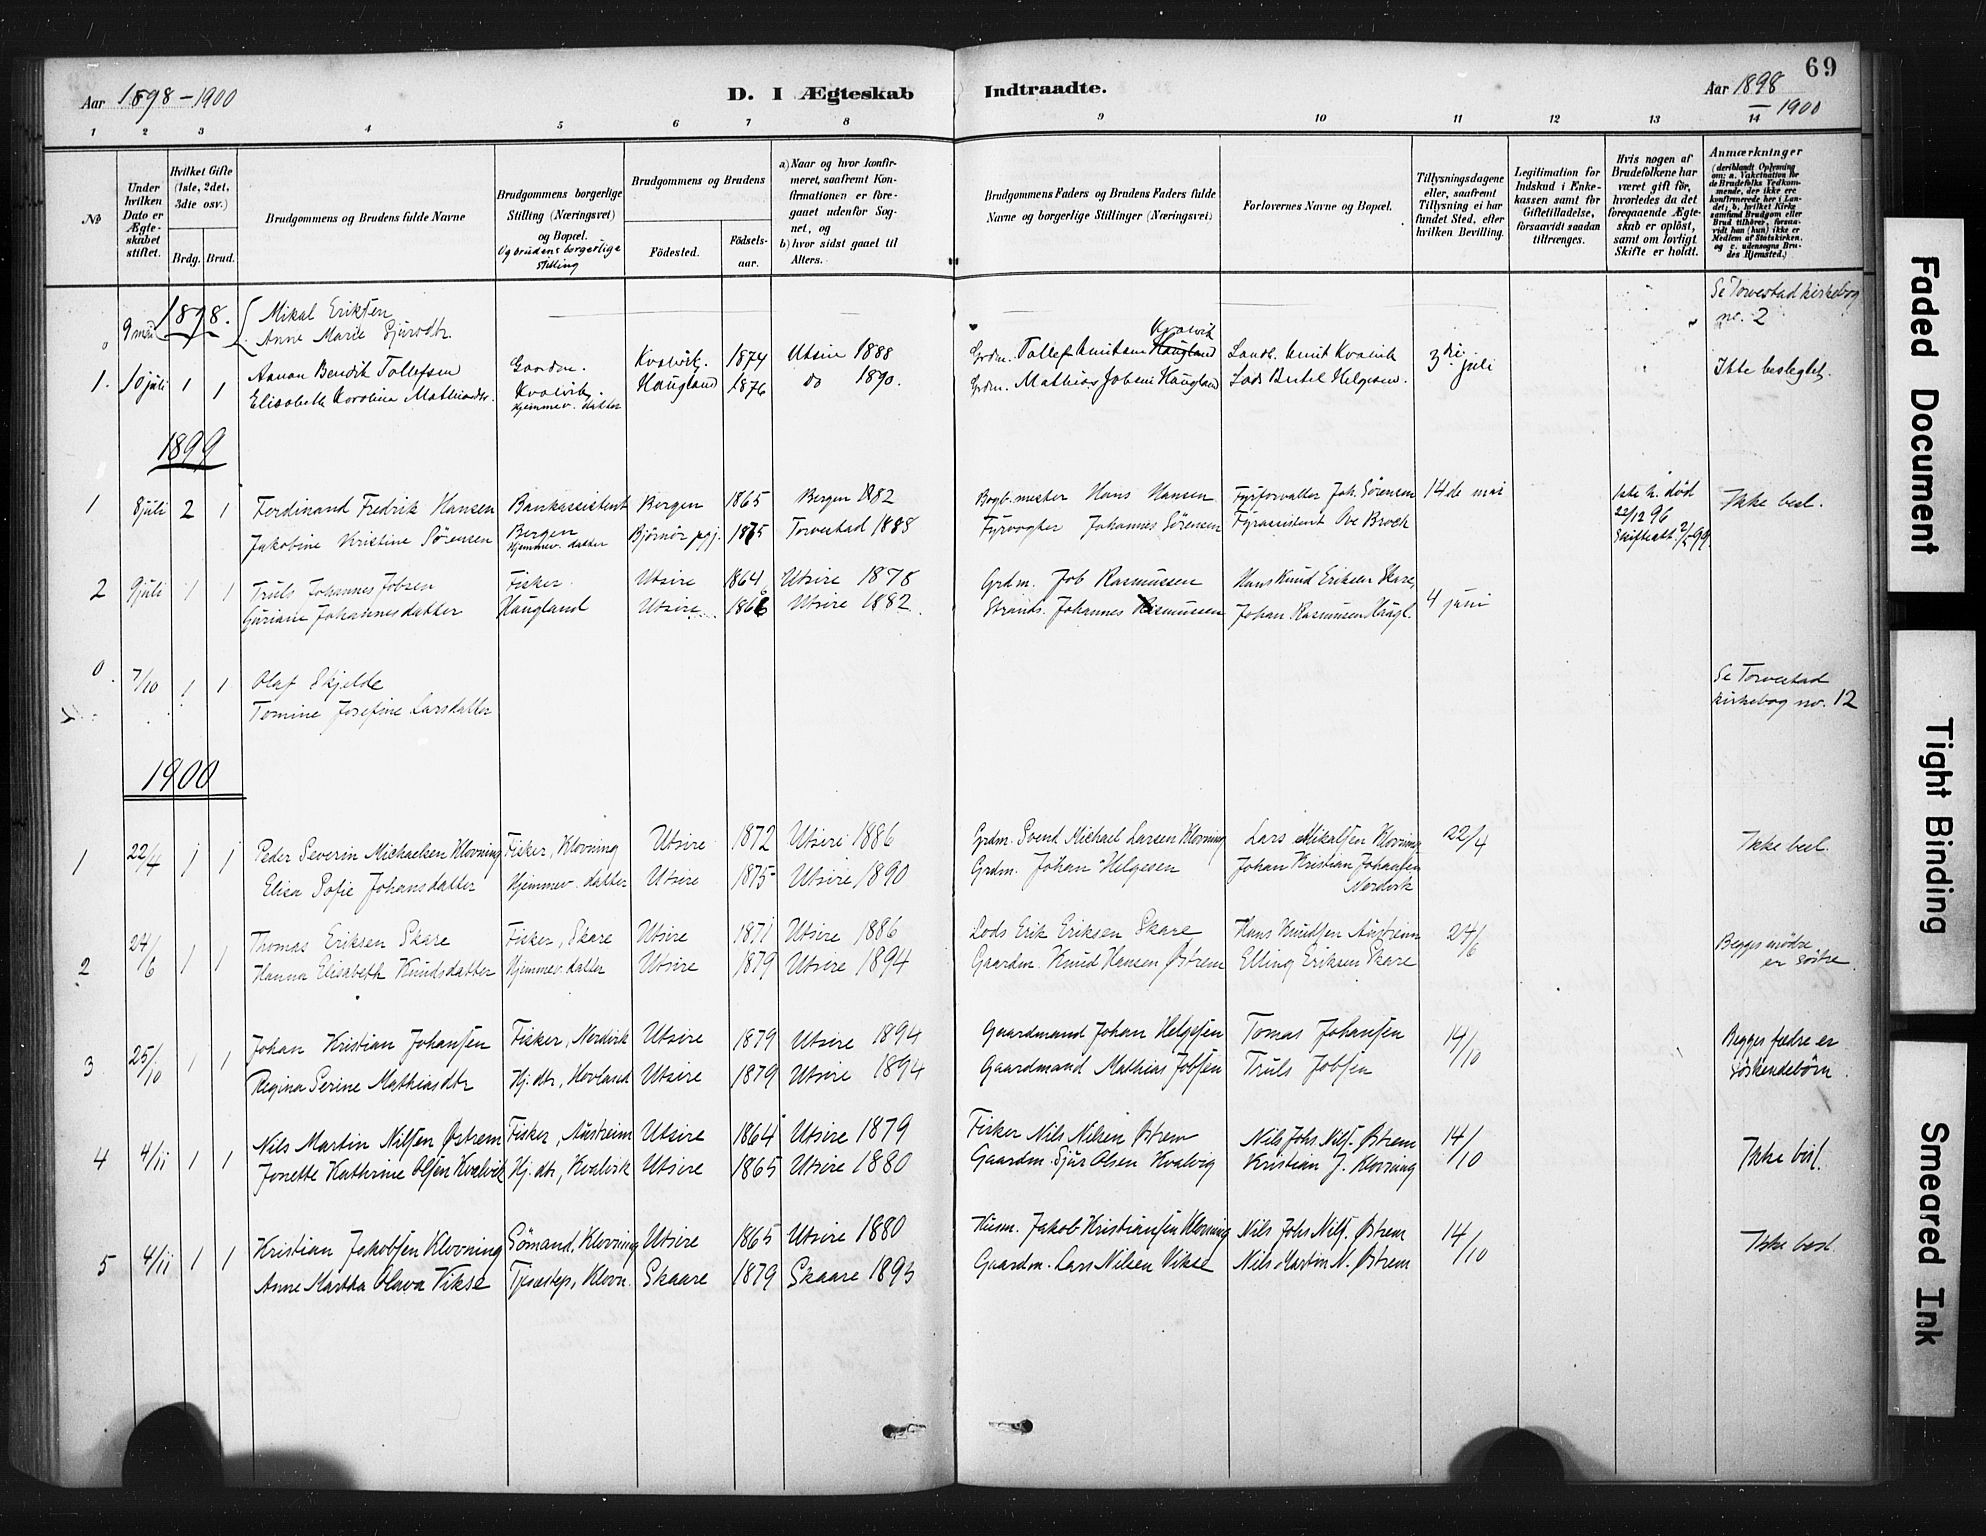 Aar 1898-1900
D. I Ægteskab Indtraadte.
Aar 1898
- 1900
69
1 2 3 4 5 6 7 8 9 10 11 12 13 14
No
Under hvilken Dato er Ægteskabet stiftet.
Hvilket Gifte (1ste, 2det, 3die osv.)
Brdg. Brud.
Brudgommens og Brudens fulde Navne
Brudgommens borgerlige Stilling (Næringsvei) og Bopæl.
Og brudens borgerlige stilling
Brudgommens og Brudens
Fødested.
Fødselsaar.
a) Naar og hvor konfirmeret, saafremt Konfirmationen er foreganet udenfor Sognet, og
b) hvor sidst gaaet til Alters.
Brudgommens Faders og Brudens Faders fulde Navne og borgerlige Stillinger (Næringsvei)
Forlovernes Navne og Bopæl.
Tillysningsdagene eller, saafremt Tillysning ei har fundet Sted, efter hvilken Bevilling.
Legitimation for Indskud i Enkekassen samt for Giftetilladelse, forsaavidt saadan tiltrænges.
Hvis nogen af Brudefolkene har været gift før, hvorledes da det foregaaende Ægteskab er opløst, samt om lovligt Skifte er holdt.
Anmærkninger
1898.
9 mai Mikal Eriksen
Anne Marie Sjursdtr.
Se Torvestad kirkebog
no. 2
1. 10 juli 1 1 Aanon Bendik Tollefsen Gaardm. Kvalvik. 1874 Utsire 1888 Grdm. Tollef Knutsen Haugland Kvalvik Landh. Knut Kvalvik 3die juli Ikke beslegtet.
Elisabeth Karoline Mathiasdtr. Kvalvik. Hjemmev. datter Haugland 1876 do 1890. Grdm. Mathias Jobsen Haugland Lods Bertel Helgesen.
1899
1 8 juli 2 1 Ferdinand Fredrik Hansen Bankassistent Bergen 1865 Bergen 1882 Bogb.mester Hans Hansen Fyrforvalter Joh. Sørensen 14de mai 1ste h. død 22/12 96 Ikke besl.
Jakobine Kristine Sørensen Bergen Hjemmev. datter Bjørnør pgj. 1875 Torvestad 1888 Fyrvogter Johannes Sørensen Fyrassistent Ove Broch Skifteatt. 2/5 99.
2 9 juli 1 1 Truls Johannes Jobsen Fisker. Utsire 1864 Utsire 1878 Grdm. Job Rasmussen Hans Knud Eriksen Skare,
Guriane Johannesdatter Haugland Utsire 1866 Utsire 1882. Strands. Johannes Rasmussen Johan Rasmusen Haugl. 4 juni
0. 7/10 1 1 Olaf Skjelde Se Torvestad
Tomine Josefine Larsdatter kirkebog no. 12
1900
1 22/4 1 1 Peder Severin Michaelsen Klovning Fisker, Klovning Utsire 1872 Utsire 1886 Grdm. Svend Michael Larsen Klovning Lars Mikalsen Klovning 22/4 Ikke besl.
Elisa Sofie Johansdatter Hjemmev. datter Utsire 1875 Utsire 1890 Grdm. Johan Helgesen Johan Kristian Johansen
Nordvik
2 24/6 1 1 Thomas Eriksen Skare Fisker, Skare Utsire 1871 Utsire 1886 Lods Erik Eriksen Skare Hans Knudsen Austreim 24/6 Begges mødre
Hanna Elisabeth Knudsdatter Hjemmev. datter Utsire 1879 Utsire 1894 Gaardm. Knud Hansen Østrem Elling Eriksen Skare er søstre.
3 25/10 1 1 Johan Kristian Johansen Fisker, Nordvik Utsire 1879 Utsire 1894 Gaardmand Johan Helgesen Tomas Johansen 14/10 Begges fædre er
Regina Serine Mathiasdtr Hj. dtr, Hovland Utsire 1879 Utsire 1894 Gaardmand Mathias Jobsen Truls Jobsen søskendebørn.
4 4/11 1 1 Nils Martin Nilsen Østrem Fisker, Austreim Utsire 1864 Utsire 1879 Fisker Nils Nilsen Østrem Nils Johs Nils. Østrem 14/10 Ikke besl.
Jonette Kathrine Olsen Kvalvik Hj. dtr, Kvalvik Utsire 1865 Utsire 1880 Gaardm. Sjur Olsen Kvalvig Kristian J. Klovning
5 4/11 1 1 Kristian Jakobsen Klovning Sømand, Klovning Utsire 1865 Utsire 1880 Husm. Jakob Kristiansen Klovning Nils Johs Nils. Østrem 14/10 Ikke besl.
Anne Martha Olava Vikse Tjenestep, Klovn. Skaare 1879 Skaare 1893 Gaardm. Lars Nilsen Vikse Nils Martin N. Østrem
Faded Document
Tight Binding
Smeared Ink